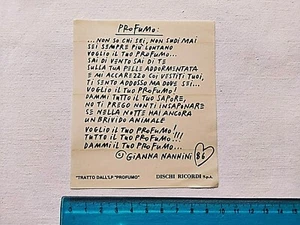 PROFUMO:
...NON SO CHI SEI, NON SUDI MAI
SEI SEMPRE PIÙ LONTANO
VOGLIO IL TUO PROFUMO...
SAI DI VENTO SAI DI TE
SULLA TUA PELLE ADDORMENTATA
E MI ACCAREZZO COI VESTITI TUOI,
TI SENTO ADDOSSO MA DOVE SEI...
VOGLIO IL TUO PROFUMO!
DAMMI TUTTO IL TUO SAPORE,
NO TI PREGO NON TI INSAPONARE
SE NELLA NOTTE HAI ANCORA
UN BRIVIDO ANIMALE
VOGLIO IL TUO PROFUMO!
TUTTO IL TUO PROFUMO!!!
DAMMI IL TUO PROFUMO...
© GIANNA NANNINI 86
"TRATTO DALL'LP "PROFUMO" DISCHI RICORDI S.p.A.